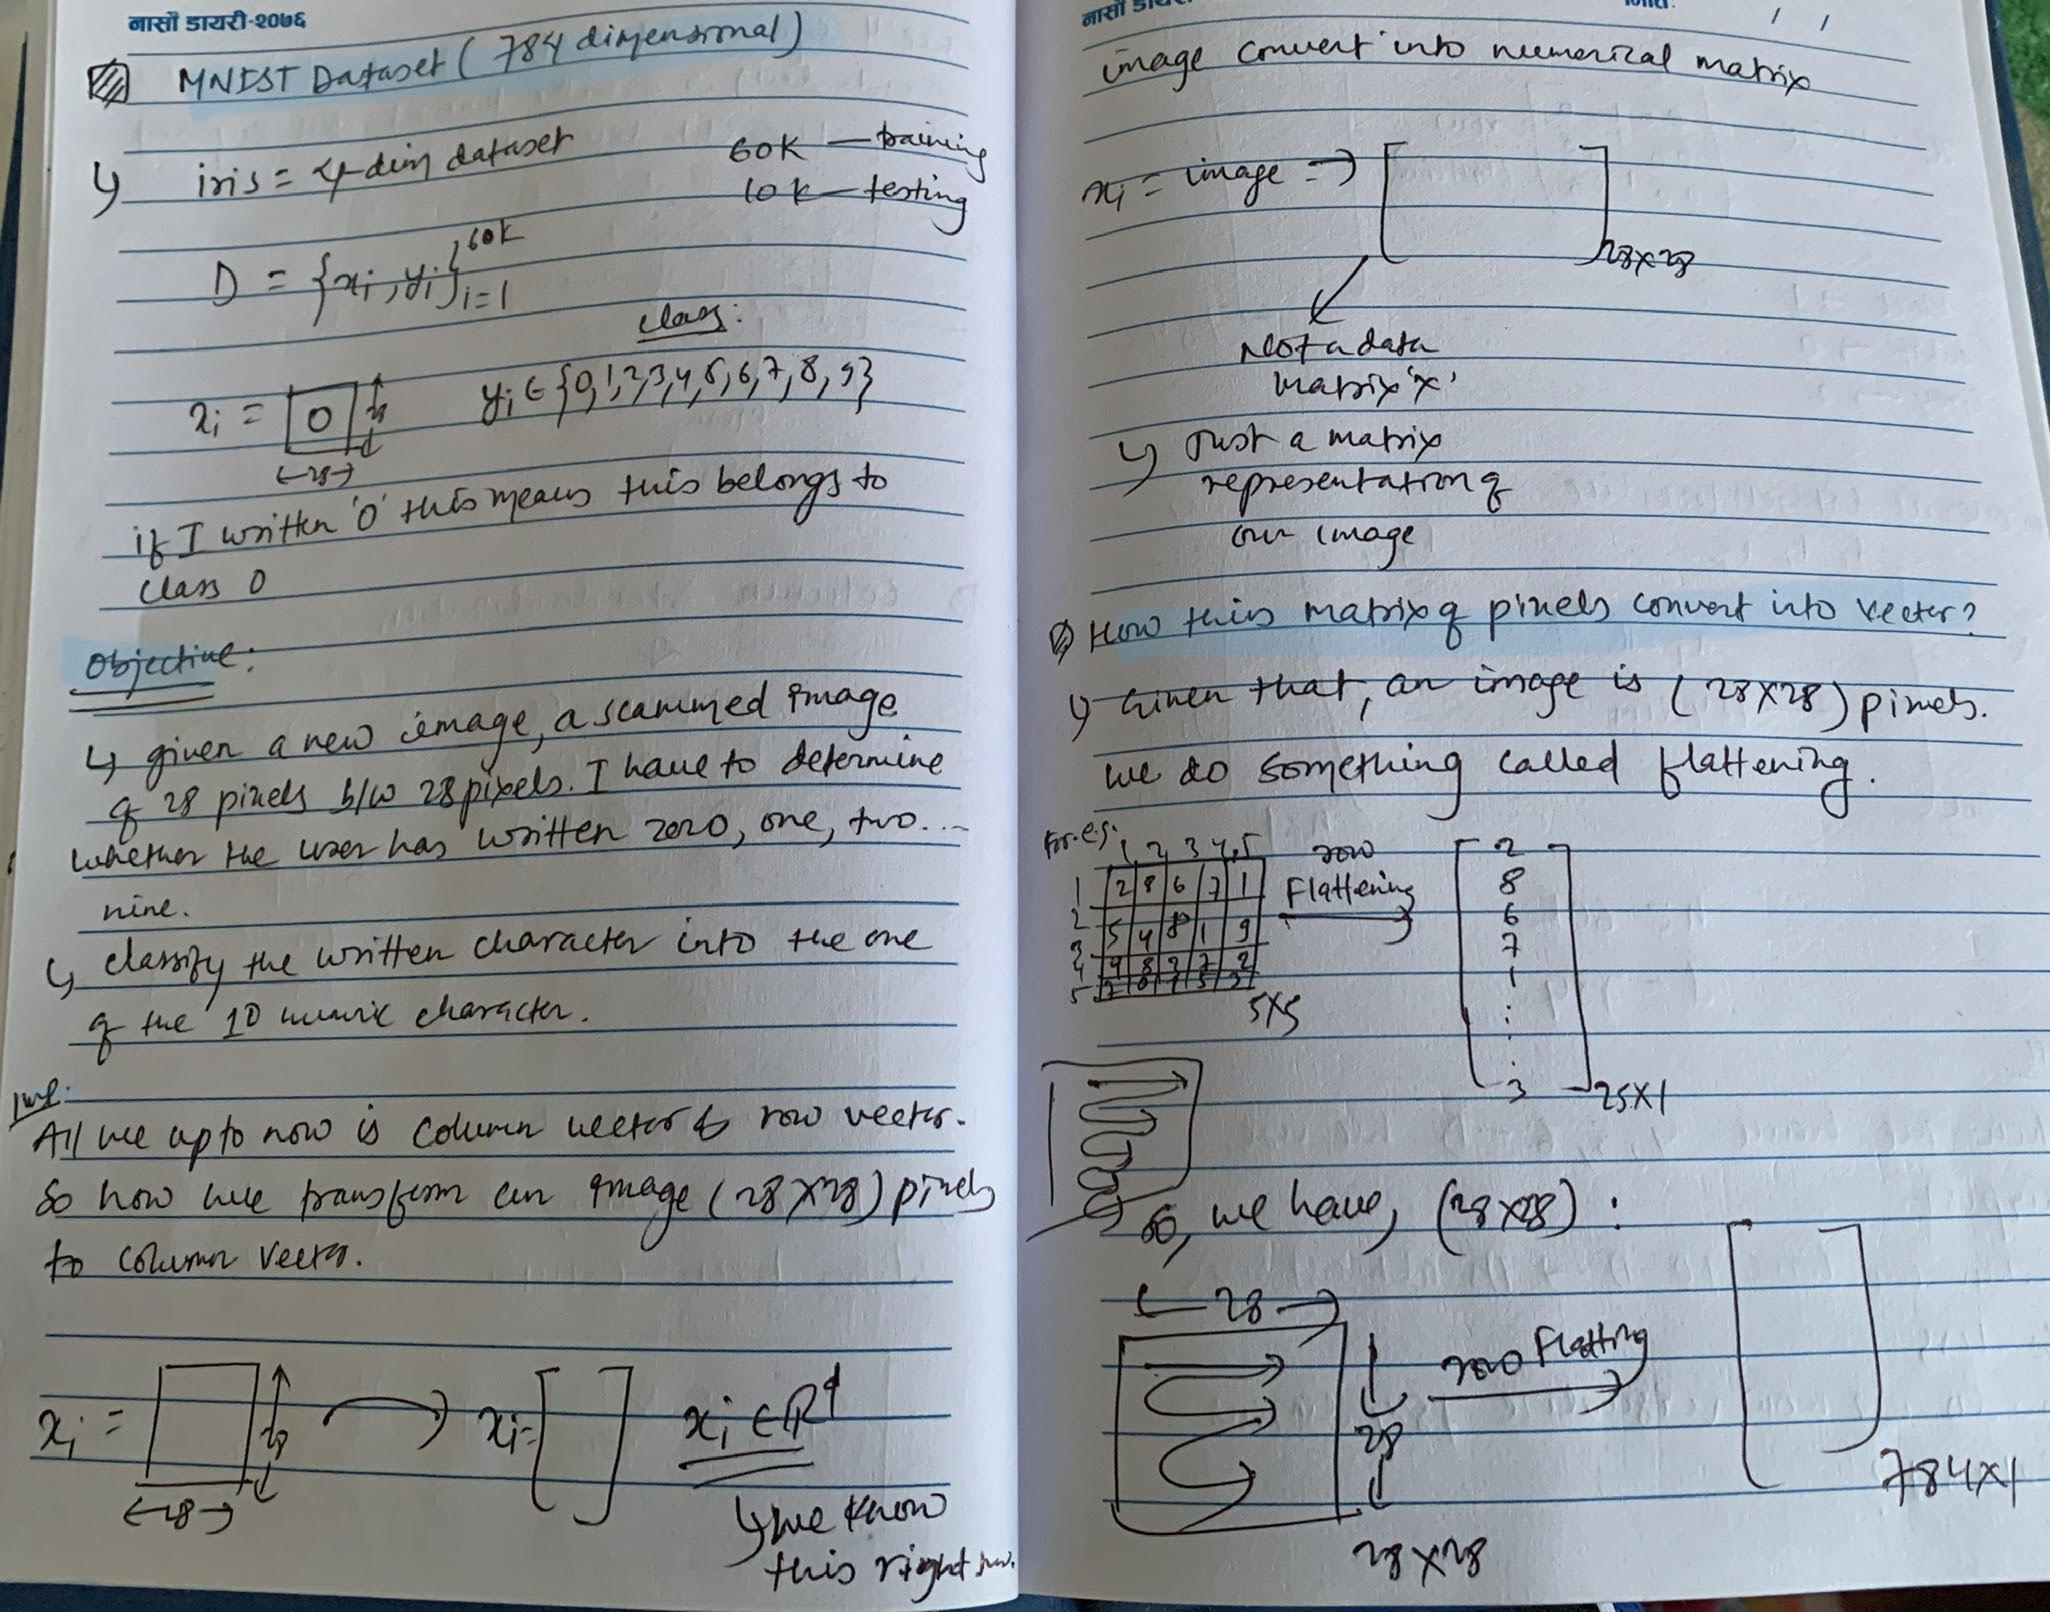 नासों डायरी-२०७६
MNIST Dataset (784 dimensional)
iris = 4-dim dataset
60K — training
10K — testing
D = {xi, yi}60K i=1
class:
xi = 0 28
yi ∈ {0,1,2,3,4,5,6,7,8,9}
28
if I written '0' this means this belongs to
class 0
Objective:
given a new image, a scanned image
of 28 pixels b/w 28 pixels. I have to determine
whether the user has written zero, one, two...
nine.
classify the written character into the one
of the 10 numric character.
Imp:
All we upto now is column vector & row vector.
So how we transform an image (28X28) pixels
to column vector.
xi = 28
28
xi = [ ]
xi ∈ Rd
we know
this right now.
नासों
मिति: / /
image convert into numerical matrix
xi = image => [ ] 28×28
Not a data
matrix 'X'
Just a matrix
representation of
our image
How this matrix of pixels convert into vector?
Given that, an image is (28X28) pixels.
we do something called flattening.
For. e.g. 1, 2, 3 4, 5
1 2 8 6 7 1
2 5 4 8 1 9
3
4 9 8 3 7 2
5
5X5
row
Flattening
2
8
6
7
1
:
.
.
3
25X1
So, we have, (28×28) :
28
28
row Flatting
28 X 28
784X1